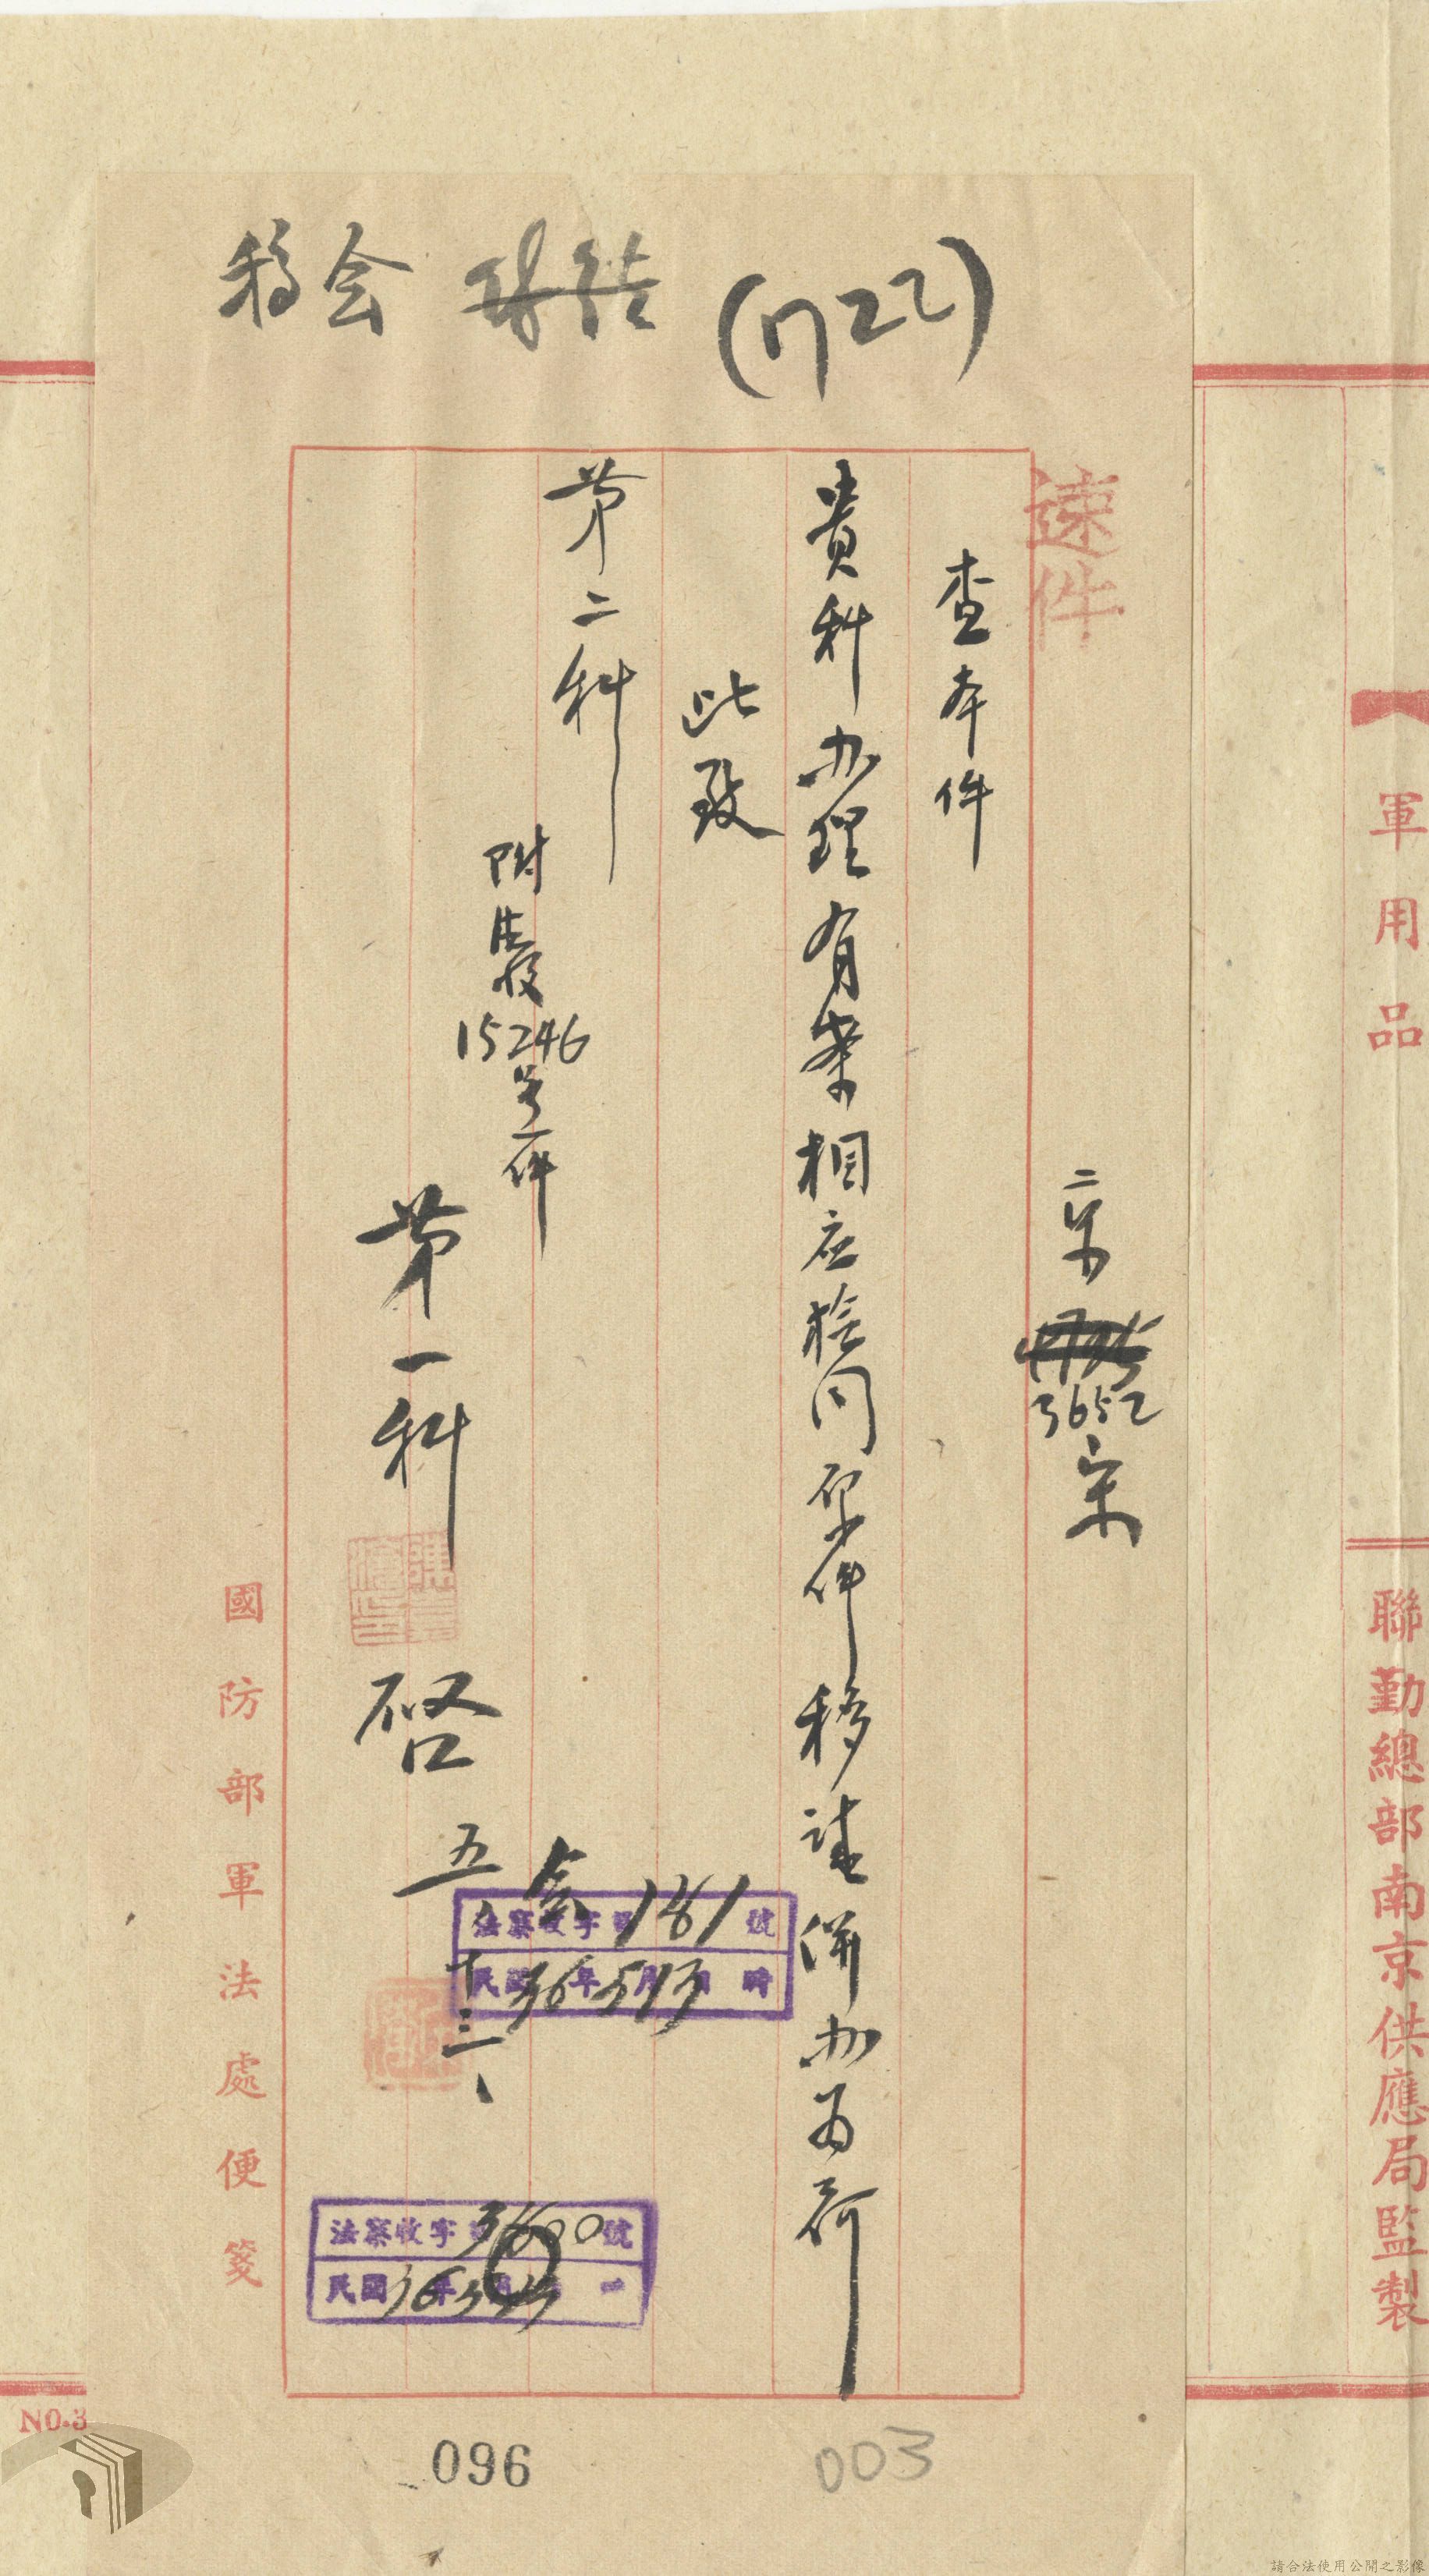 (1722)
会
速件
查本件
貴科办理有案相应檢同原件移請併办为荷
此致
第二科
附法叚15246号一件
第一科
啓
五、十三、
3652
宋
会 181
法察收字第 號
民國36年5月13日 時
法察收字第3600號
民國36年
國防部軍法處便箋
軍用品
聯勤總部南京供應局監製
NO.3
096
003
請合法使用公開之影像